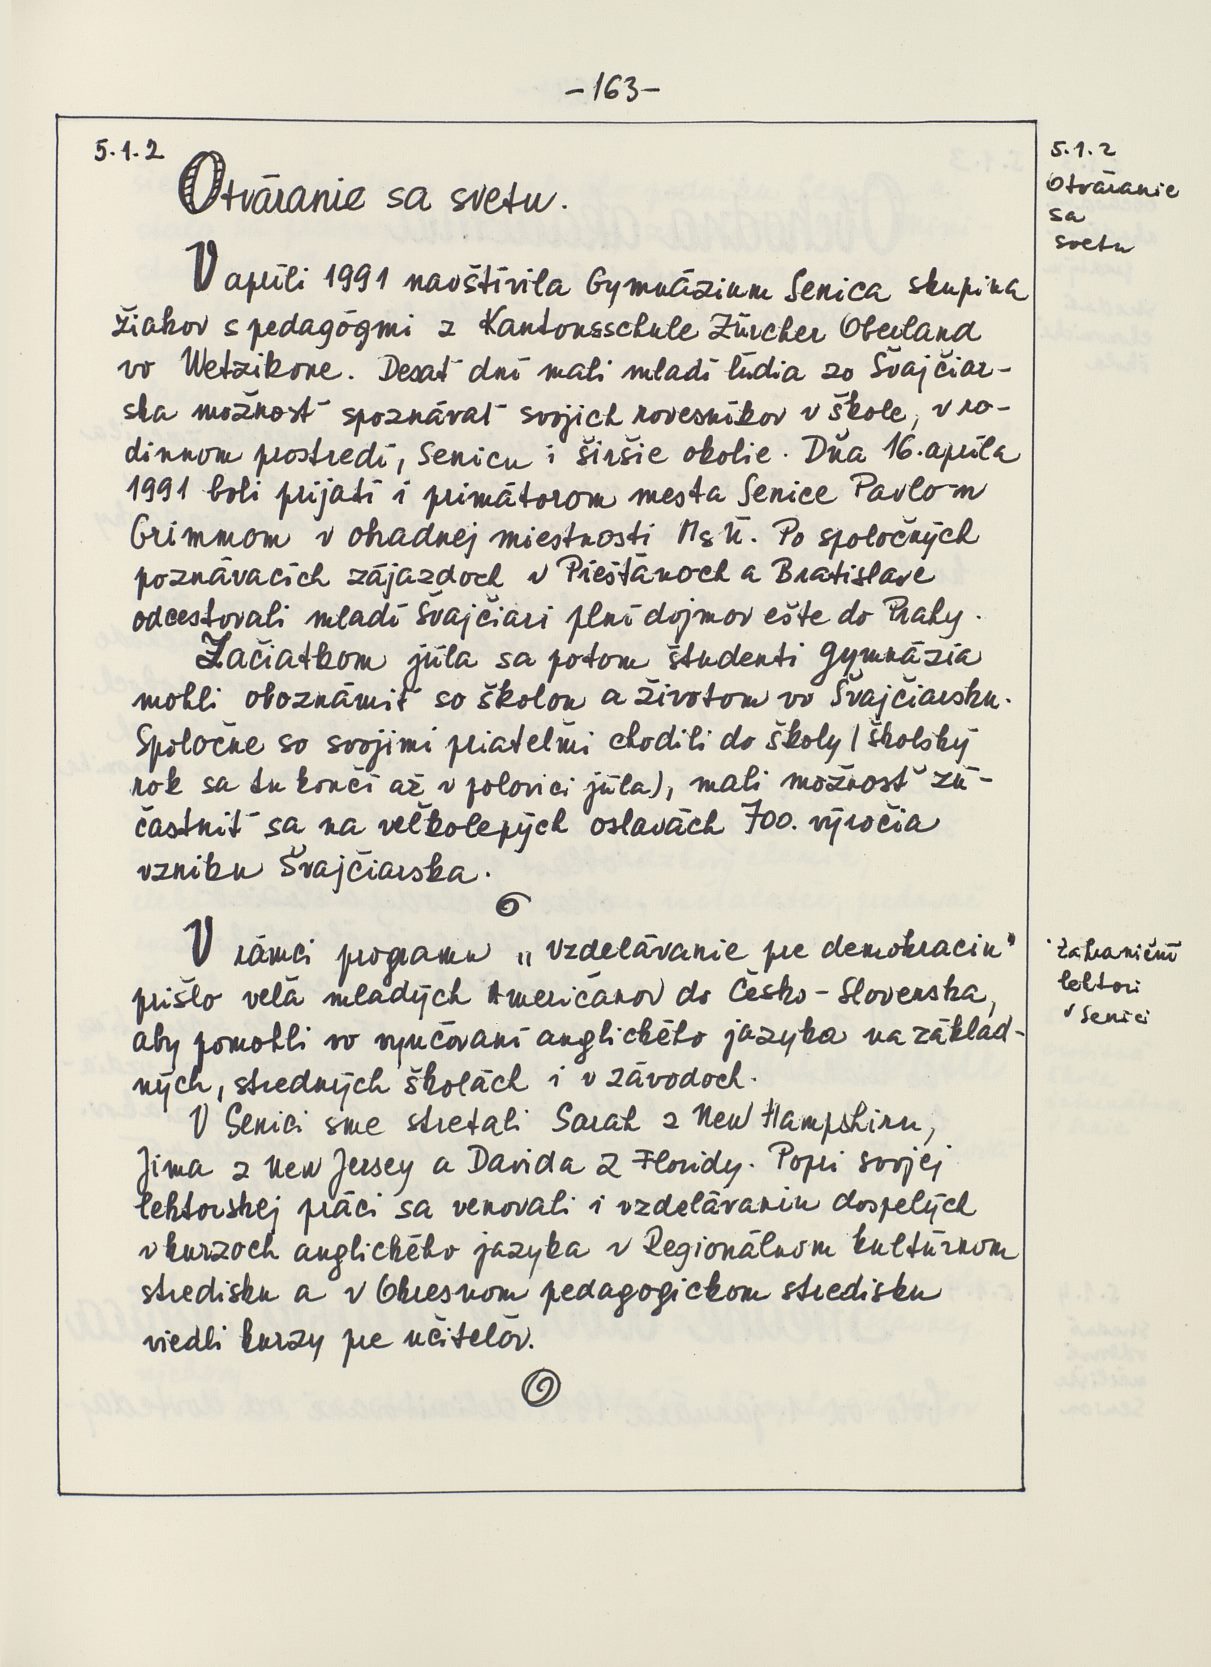 -163-
5.1.2
Otváranie sa svetu.
5.1.2
Otváranie
sa
svetu
V apríli 1991 navštívila Gymnázium Senica skupina
žiakov s pedagógmi z Kantonsschule Zürcher Oberland
vo Wetzikone. Desať dní mali mladí ľudia zo Švajčiar-
ska možnosť spoznávať svojich rovesníkov v škole, v ro-
dinnom prostredí, Senicu i širšie okolie. Dňa 16. apríla
1991 boli prijatí i primátorom mesta Senice Pavlom
Grimmom v obradnej miestnosti MsÚ. Po spoločných
poznávacích zájazdoch v Piešťanoch a Bratislave
odcestovali mladí Švajčiari plní dojmov ešte do Prahy.
Začiatkom júla sa potom študenti gymnázia
mohli oboznámiť so školou a životom vo Švajčiarsku.
Spoločne so svojimi priateľmi chodili do školy / školský
rok sa tu končí až v polovici júla), mali možnosť zú-
častniť sa na veľkolepých oslavách 700. výročia
vzniku Švajčiarska.
V rámci programu „Vzdelávanie pre demokraciu"
prišlo veľa mladých Američanov do Česko-Slovenska,
aby pomohli vo vyučovaní anglického jazyka na základ-
ných, stredných školách i v závodoch.
Zahraniční
lektori
v Senici
V Senici sme stretali Sarah z New Hampshiru,
Jima z New Jersey a Davida z Floridy. Popri svojej
lektorskej práci sa venovali i vzdelávaniu dospelých
v kurzoch anglického jazyka v Regionálnom kultúrnom
stredisku a v Okresnom pedagogickom stredisku
viedli kurzy pre učiteľov.